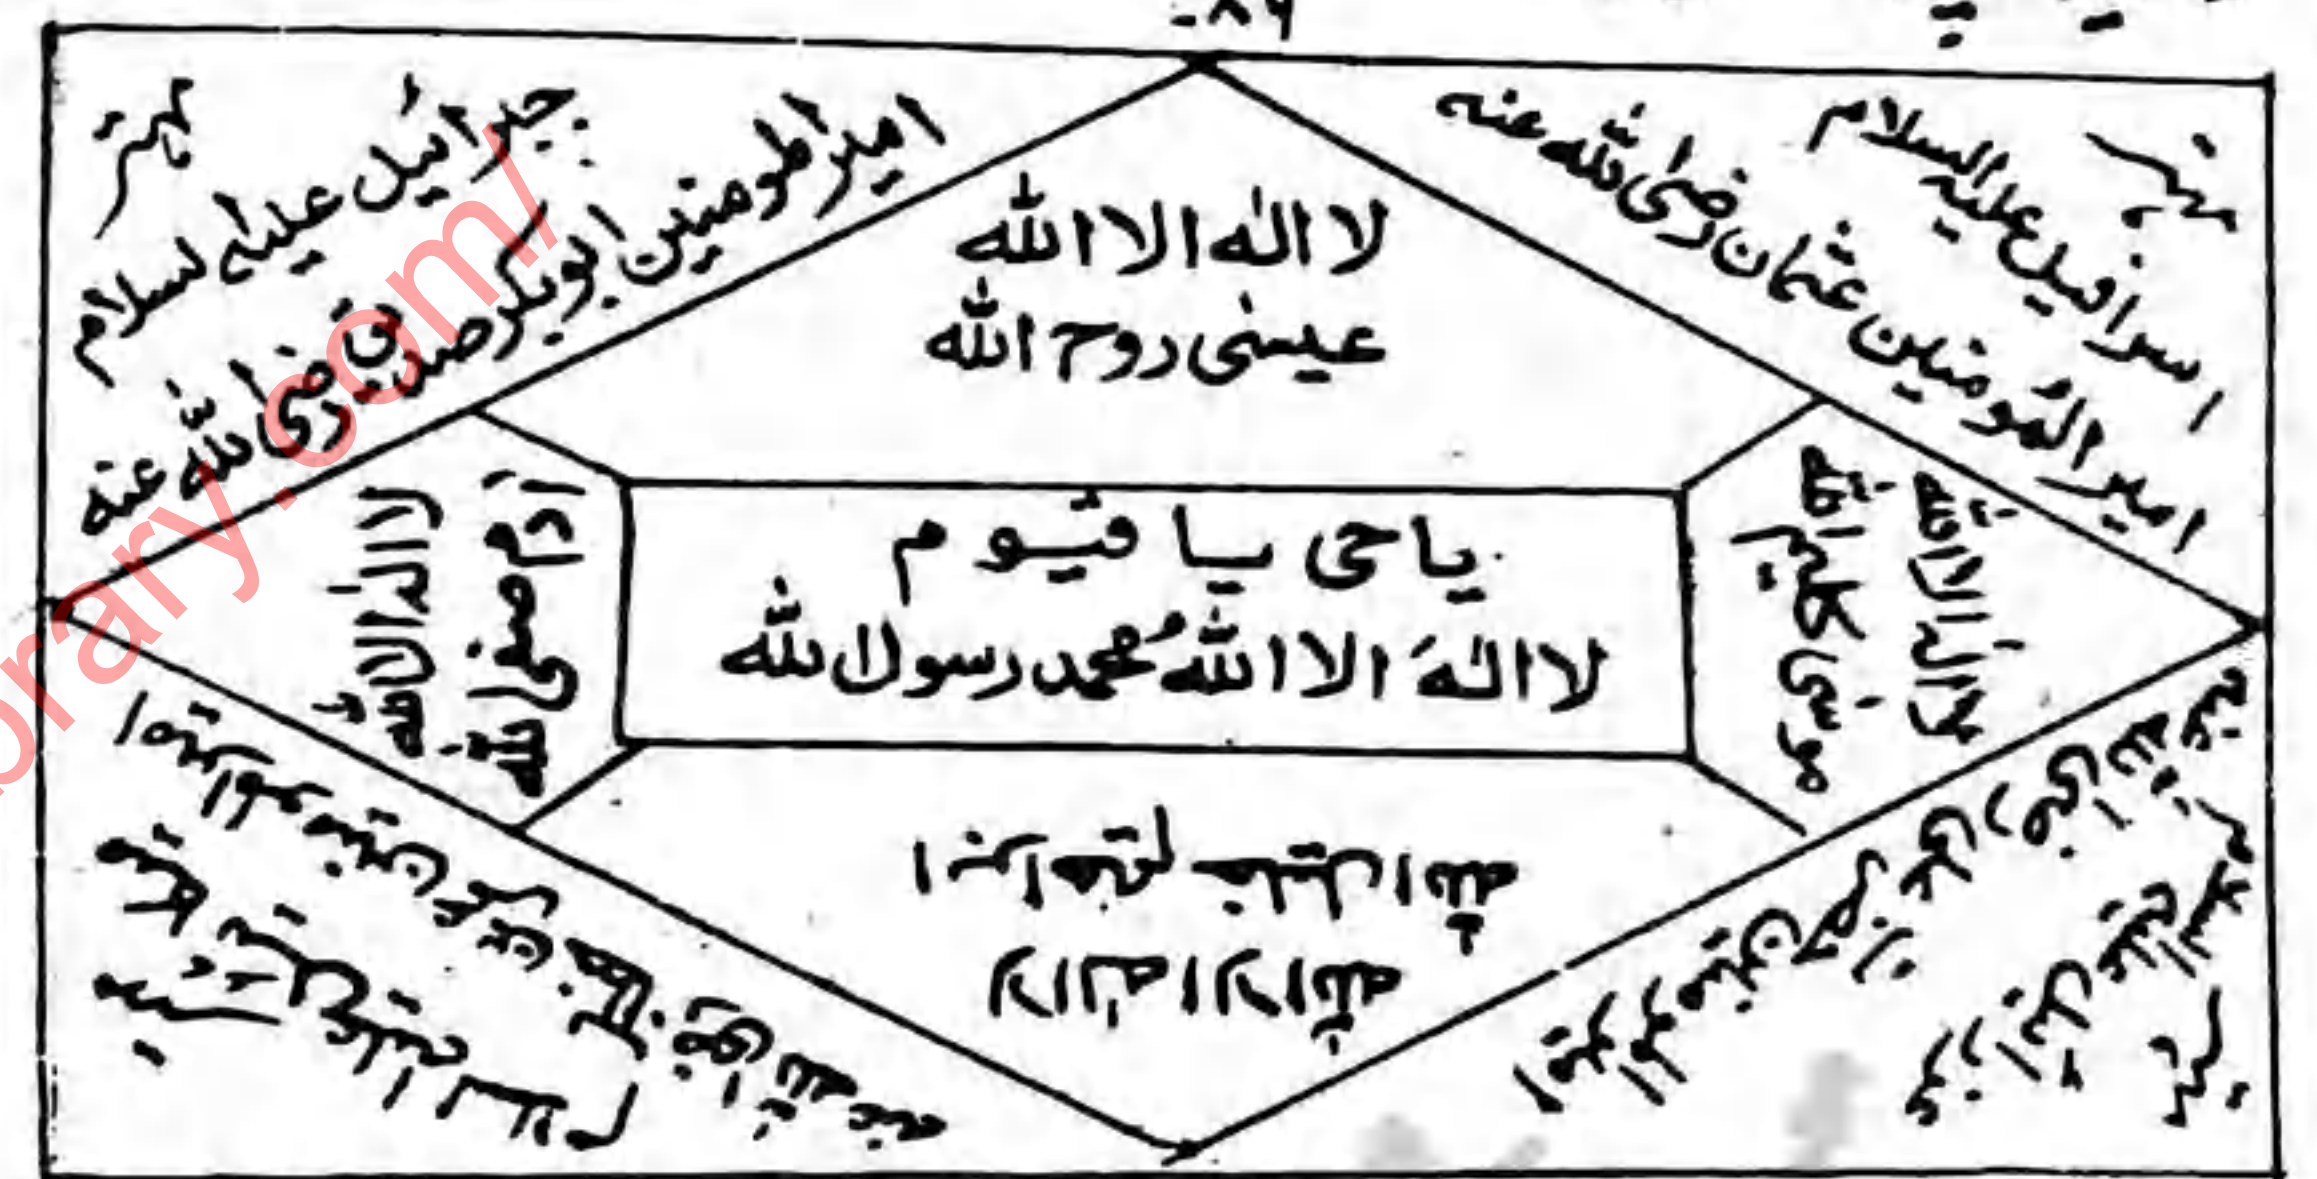 ۷۸۶
مہتر
جبرائیل علیہ السلام
امیر المومنین ابوبکر صدیق رضی اللہ عنہ
مہتر
اسرافیل علیہ السلام
امیر المؤمنین عثمان رضی اللہ عنہ
لا الٰہ الا اللہ
عیسٰی روح اللہ
لا الہ الا اللہ
آدم صفی اللہ
یا حی یا قیوم
لا الٰہَ الا اللہُ محمد رسول اللہ
لا الہ الا اللہ
موسٰی کلیم اللہ
لا الہ الا اللہ
ابراہیم خلیل اللہ
امیر المومنین عمر بن خطاب رضی اللہ عنہ
میکائیل علیہ السلام
امیر المومنین علی رضی اللہ عنہ
مہتر
عزرائیل علیہ السلام
library.com/